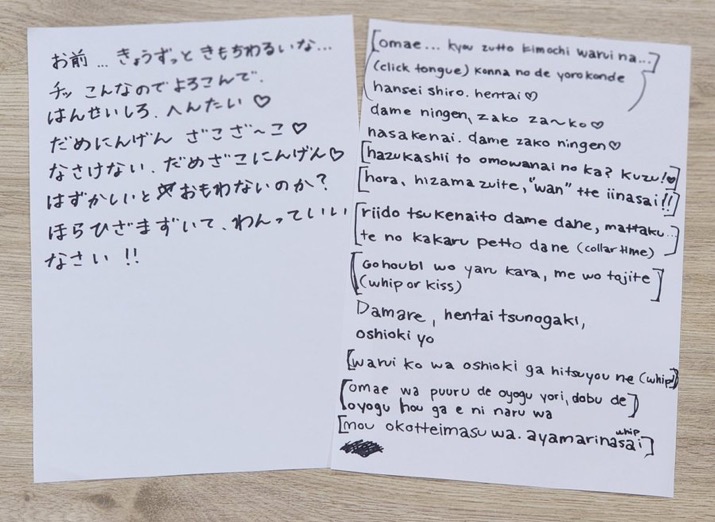 お前...きょうずっときもちわるいな...
チッ こんなのでよろこんで.
はんせいしろ.へんたい♡
だめにんげん ざこざ〜こ♡
なさけない.だめざこにんげん♡
はずかしいとおもわないのか?
ほらひざまずいて、わんっていい
なさい!!
[omae... kyou zutto kimochi warui na...]
(click tongue) konna no de yorokonde
hansei shiro. hentai♡
dame ningen, zako za~ko♡
nasakenai. dame zako ningen♡
[hazukashii to omowanai no ka? kuzu!♡]
[hora, hizama zuite, "wan" tte iinasai!!]
[riido tsukenaito dame dane, mattaku...
te no kakaru petto dane (collar time)]
[Gohoubi wo yaru kara, me wo tojite
(whip or kiss)]
Damare, hentai tsunogaki,
oshioki yo
[warui ko wa oshioki ga hitsuyou ne (whip)]
[omae wa puuru de oyogu yori, dobu de
oyogu hou ga e ni naru wa]
[mou okotteimasu wa. ayamarinasai] whip